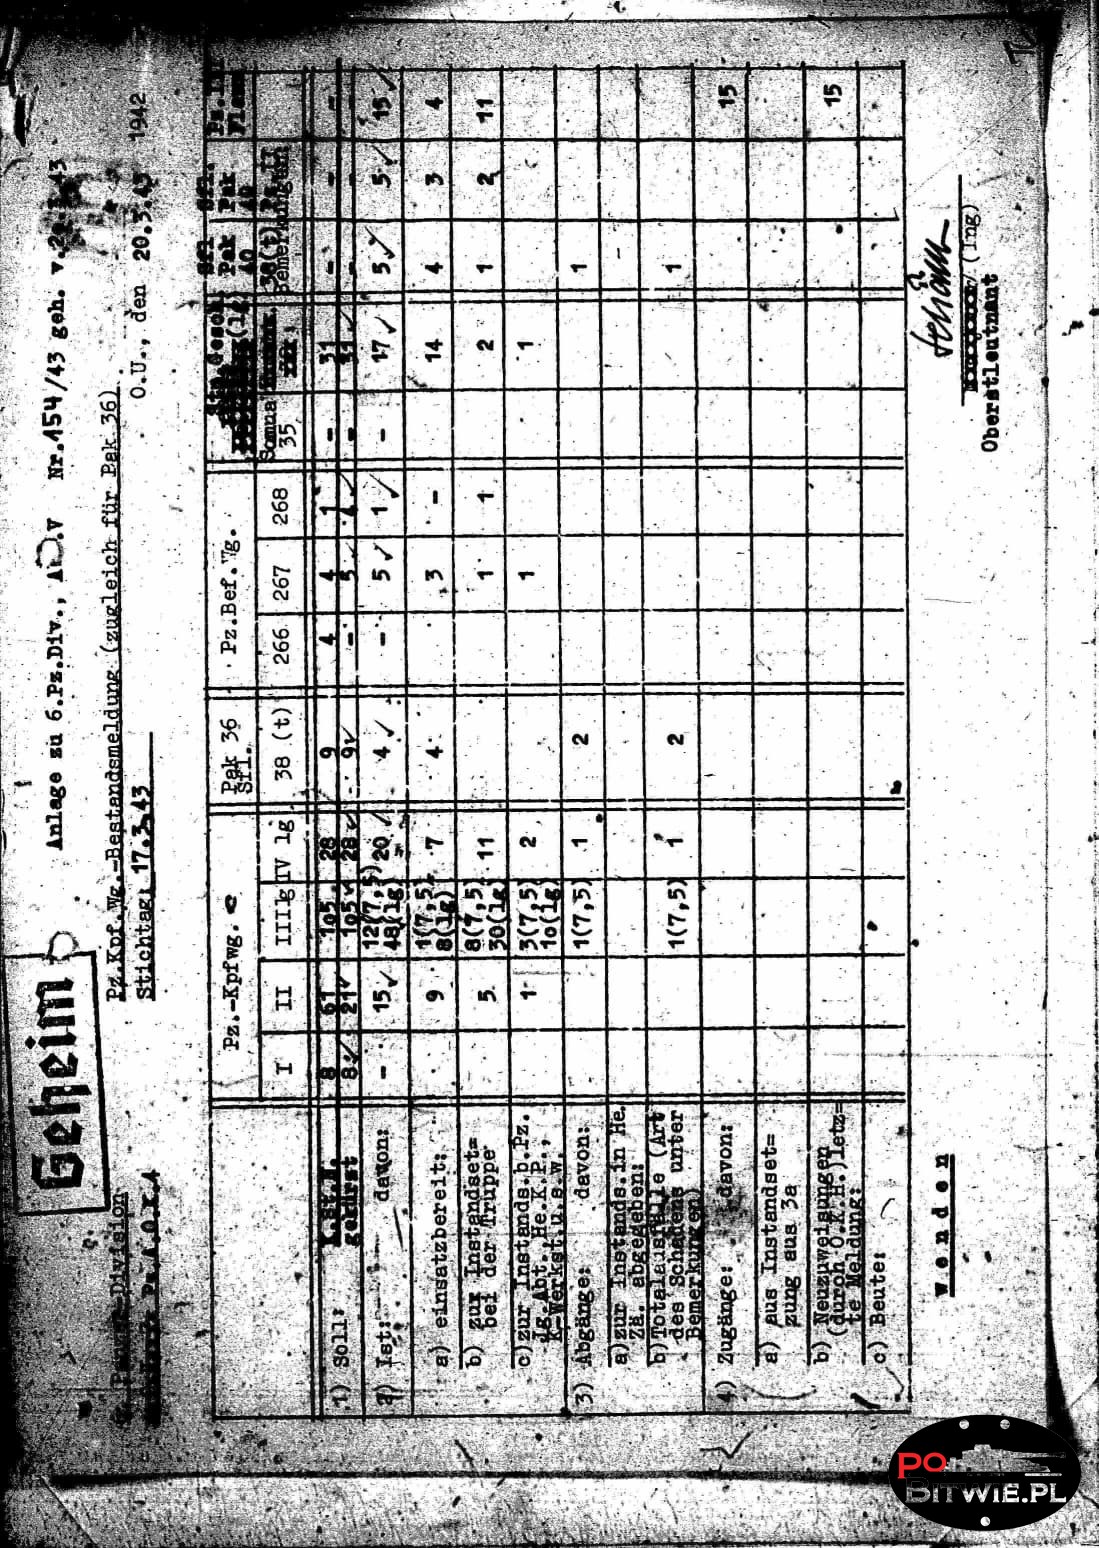 Geheim
Anlage zu 6.Pz.Div., Nr.154/43 geh. v.
Panzer-Division
Pz.Kpf.Wg.-Bestandsmeldung (zugleich für Pak 36)
Stichtag: 17.3.43
O.U., den 20.3.43 1942
Pz.-Kpfwg. Pak 36 Sfl. Pz.Bef.Wg. Sfl Pak 40 Sfl. Pak 40
I II III lg IV lg 38 (t) 266 267 268 Somua 35 38(t) Pz II
Bemerkungen
1) Soll: K.St.N. 8 61 105 28 9 4 4 1 - 31 - - -
gekürzt 8 21 105 28 9 - 5 1 - 31 - - -
2) Ist: davon: - 15 12(7,5) 48(lg) 20 4 - 5 1 - 17 5 5 15
a) einsatzbereit: 9 1(7,5) 8(lg) 7 4 3 - 14 4 3 4
b) zur Instandset=
bei der Truppe 5 8(7,5) 30(lg) 11 1 1 2 1 2 11
c) zur Instands.b.Pz.
Jg.Abt., He.K.P.,
K-Werkst.u.s.w. 1 3(7,5) 10(lg) 2 1 1
3) Abgänge: davon: 1(7,5) 1 2 1
a) zur Instands.in He.
Zä. abgegeben: -
b) Totalausfälle (Art
des Schadens unter
Bemerkungen) 1(7,5) 1 2 1
4) Zugänge: davon: 15
a) aus Instandset=
zung aus 3a
b) Neuzuweisungen
(durch O.K.H.) letz=
te Meldung: 15
c) Beute:
wenden
(Ing)
Oberstleutnant
PO
BITWIE.PL